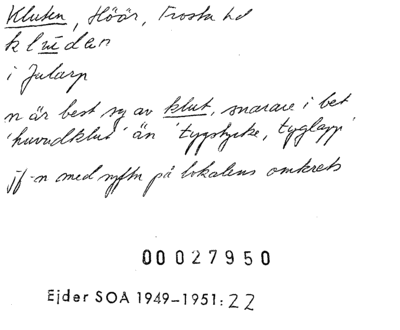 Kluten, Höör, Frosta hd
klūdan
i Jularp
n är best sg av klut, snarare i bet
'huvudklut' än 'tygstycke, tyglapp'
jf-n med syftn på lokalens omkrets
00027950
Ejder SOA 1949-1951:22